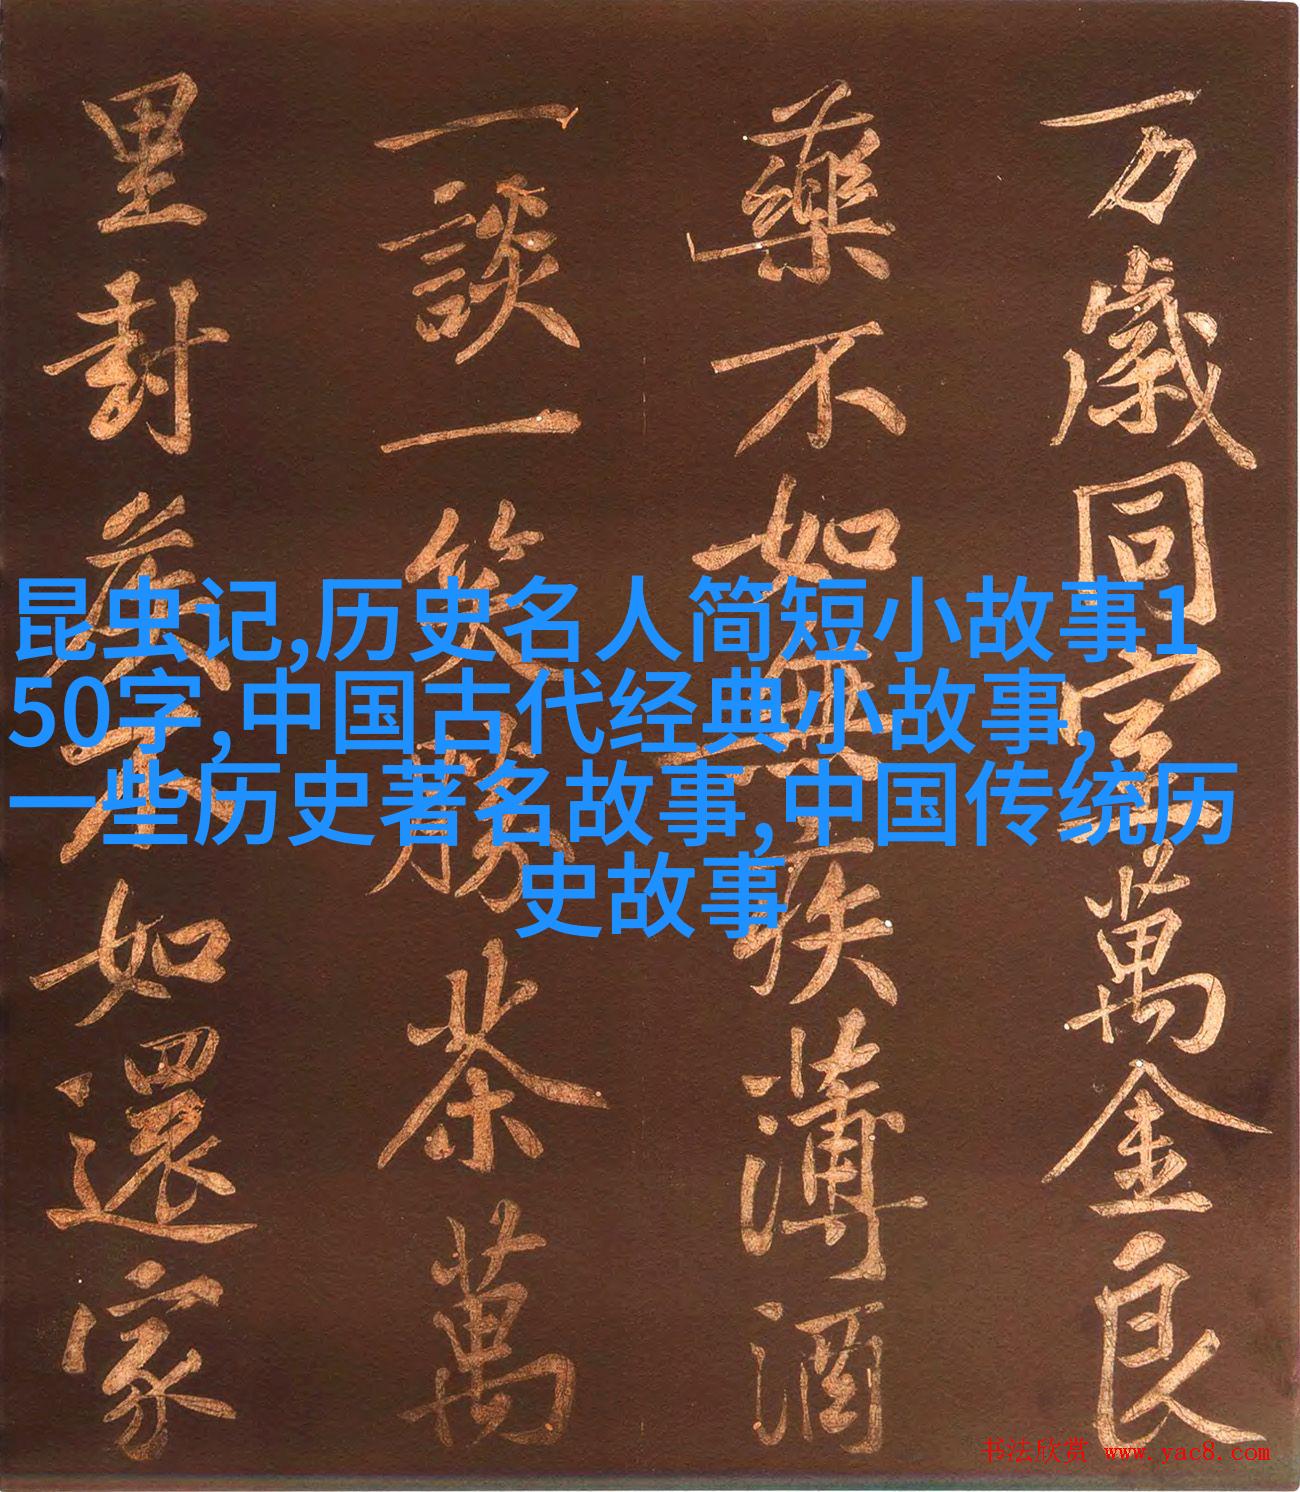 万歲同室萬金良
藥不如無疾薄酒
一談一笑勝茶萬
里封侯不如還家
昆虫记,历史名人简短小故事1
50字,中国古代经典小故事,
一些历史著名故事,中国传统历
史故事
书法欣赏 www.yac8.com